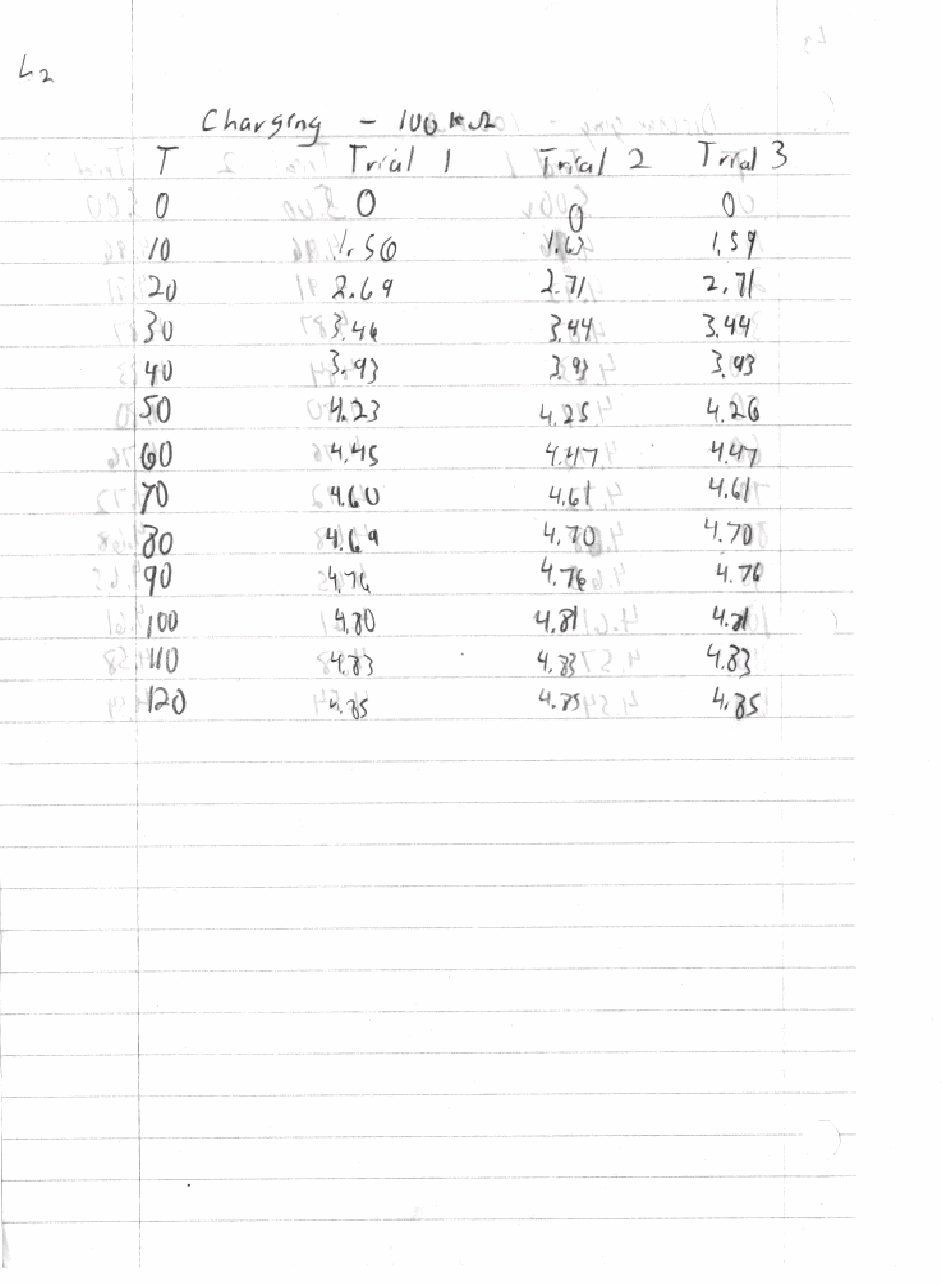 L2
Charging - 100 kΩ
T Trial 1 Trial 2 Trial 3
0 0 0 0
10 1.50 1.63 1.59
20 2.69 2.71 2.71
30 3.44 3.44 3.44
40 3.93 3.93 3.93
50 4.23 4.25 4.26
60 4.45 4.47 4.47
70 4.60 4.61 4.61
80 4.69 4.70 4.70
90 4.76 4.76 4.76
100 4.80 4.81 4.81
110 4.83 4.83 4.83
120 4.85 4.85 4.85